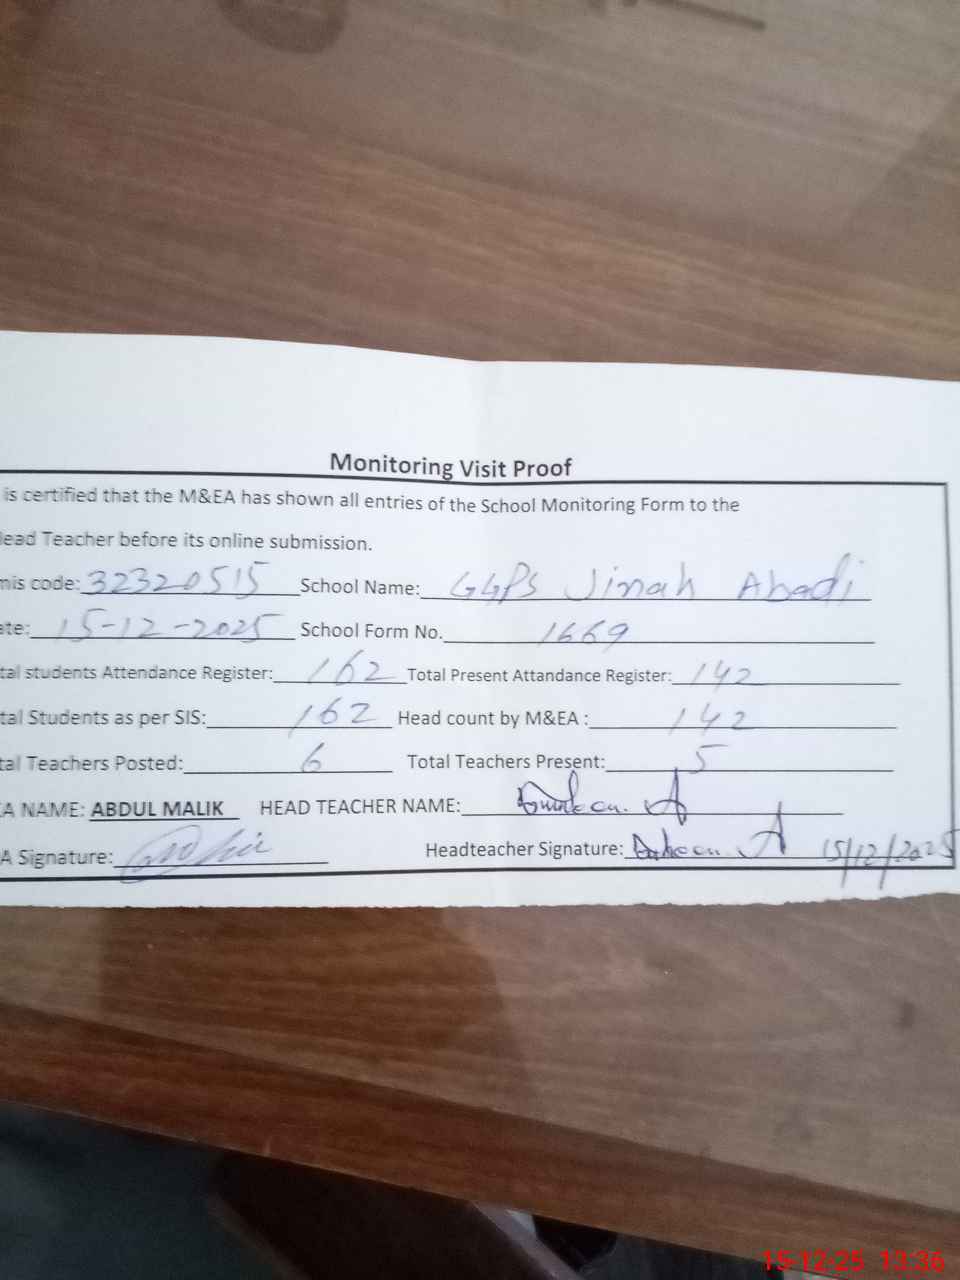 Monitoring Visit Proof
is certified that the M&EA has shown all entries of the School Monitoring Form to the
ead Teacher before its online submission.
mis code: 32320515 School Name: GGPS Jinah Abadi
ate: 15-12-2025 School Form No. 1669
tal students Attendance Register: 162 Total Present Attandance Register: 142
tal Students as per SIS: 162 Head count by M&EA : 142
tal Teachers Posted: 6 Total Teachers Present: 5
A NAME: ABDUL MALIK HEAD TEACHER NAME:
A Signature: Headteacher Signature: 15/12/2025
15-12-25 13:36